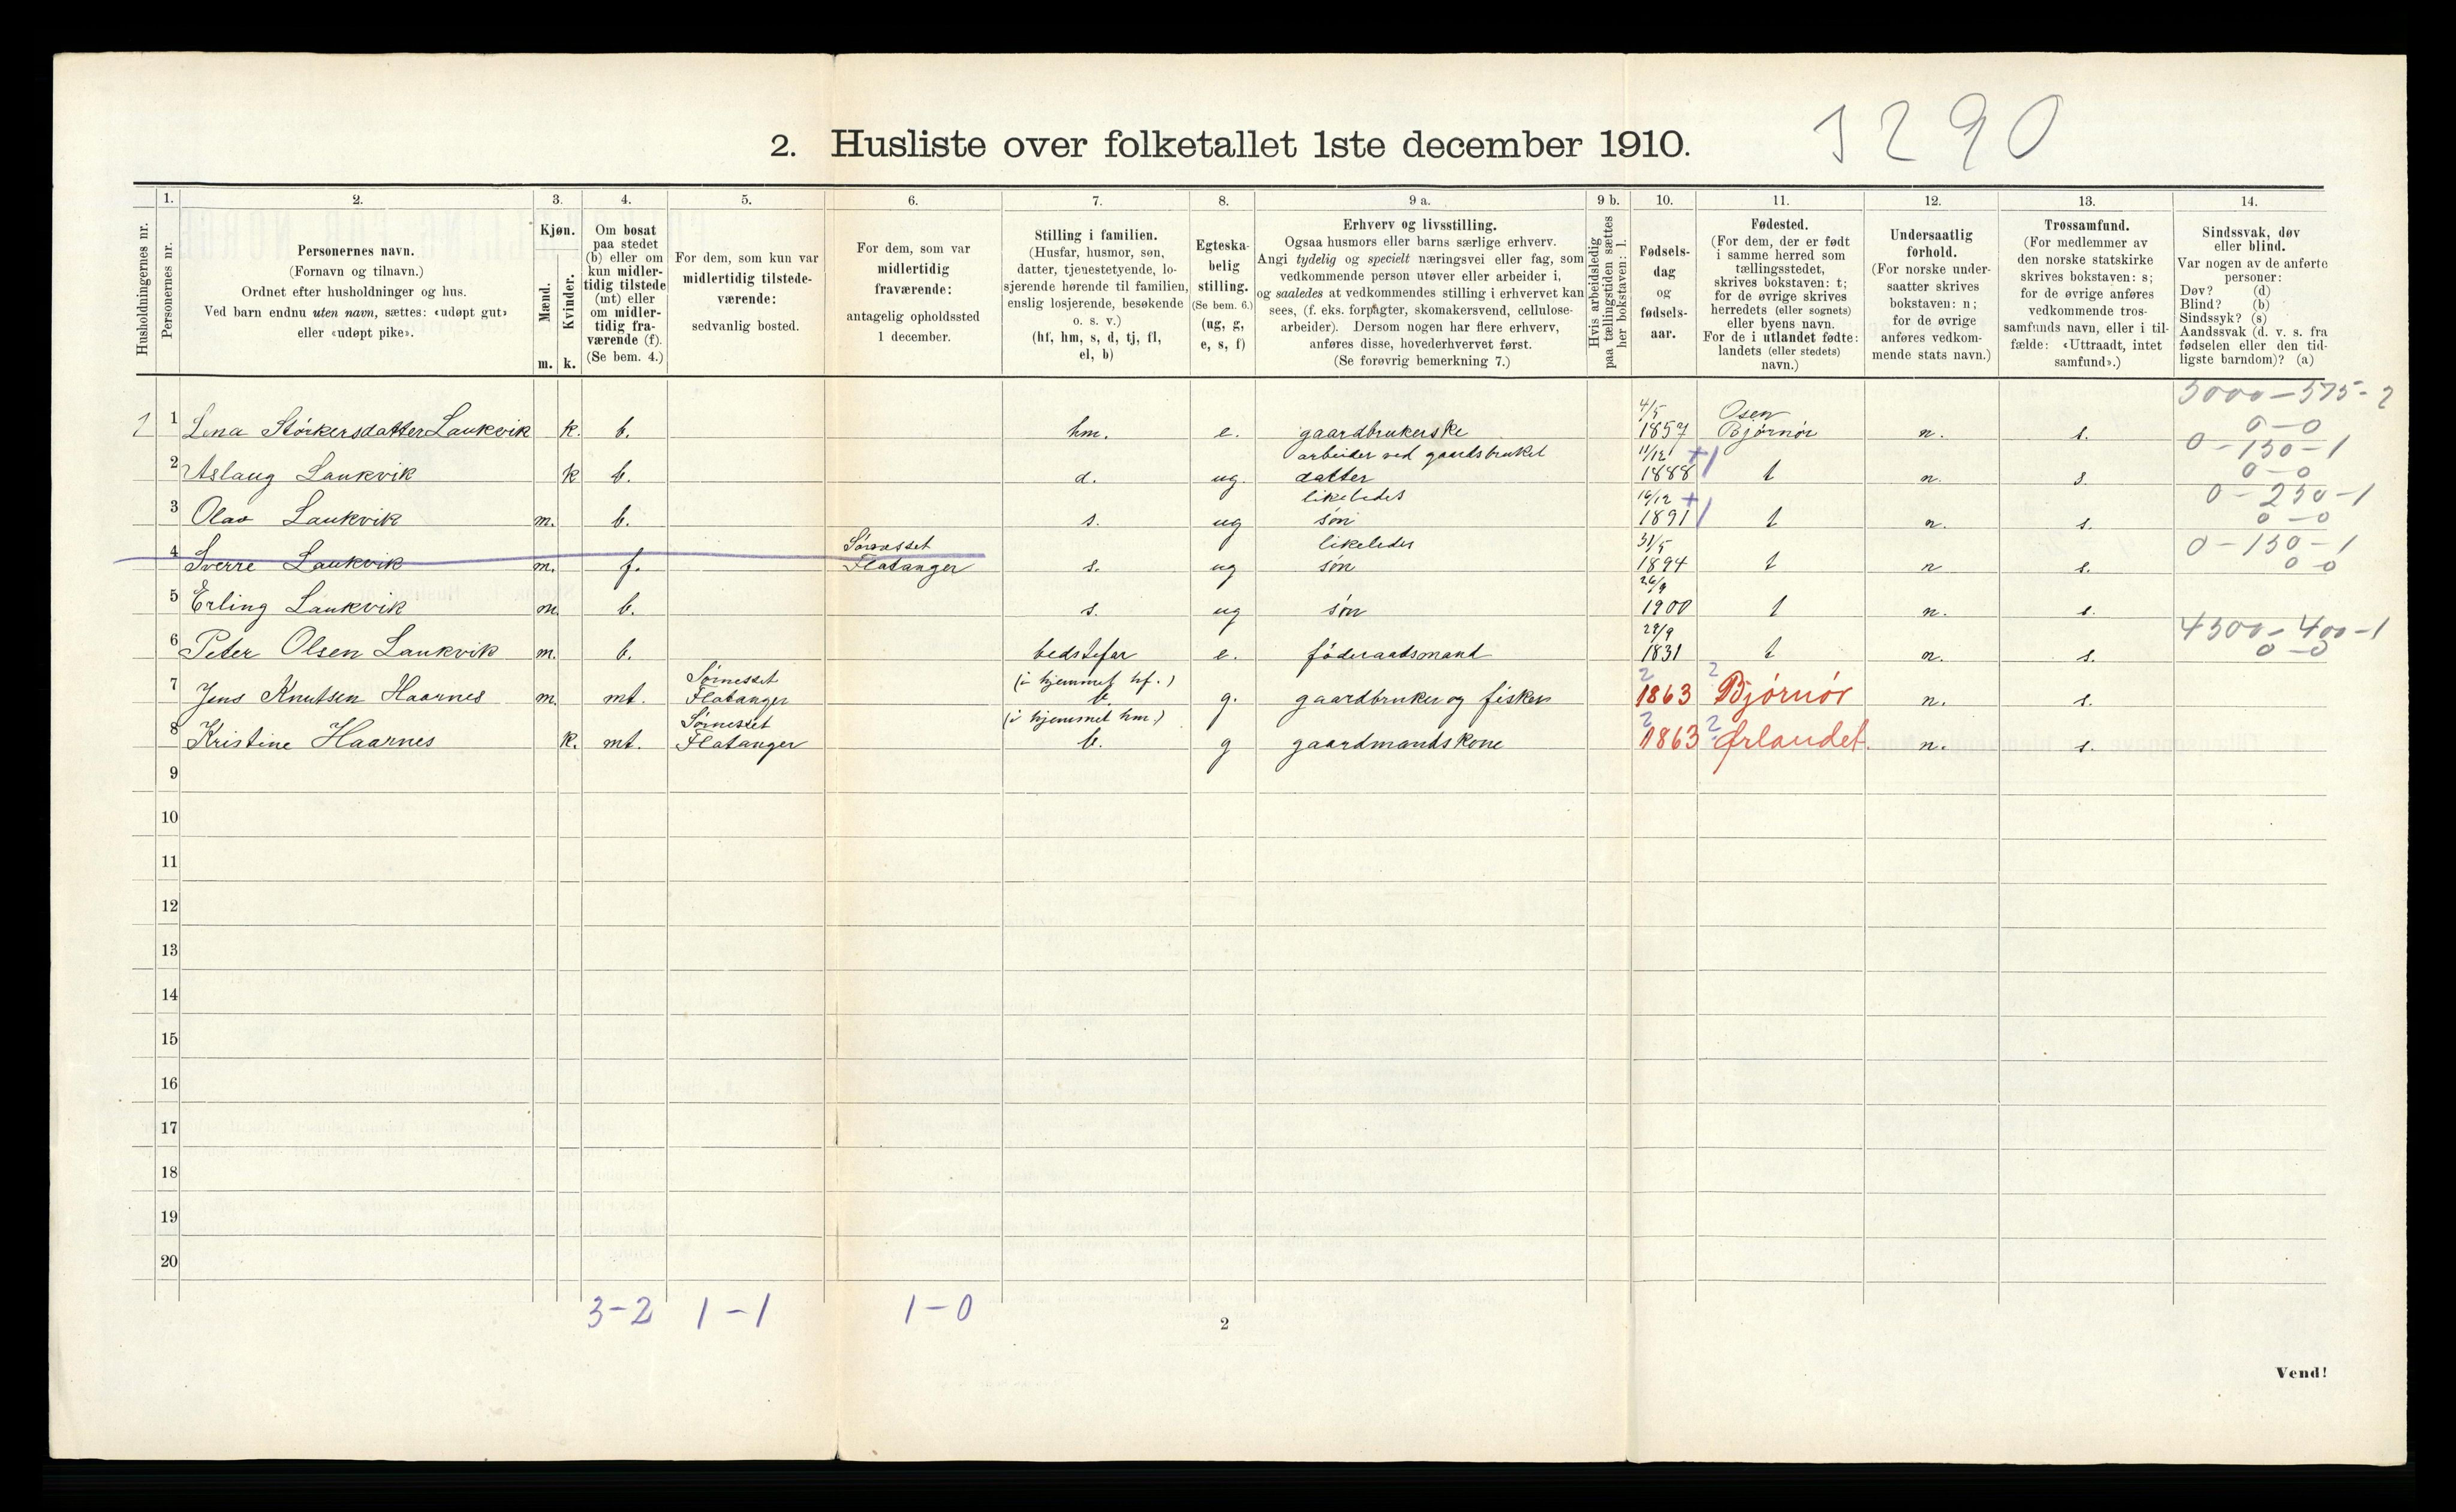 2. Husliste over folketallet 1ste december 1910.
1290
1. 2. 3. 4. 5. 6. 7. 8. 9 a. 9 b. 10. 11. 12. 13. 14.
Husholdningernes nr.
Personernes nr.
Personernes navn.
(Fornavn og tilnavn.)
Ordnet efter husholdninger og hus.
Ved barn endnu uten navn, sættes: «udøpt gut»
eller «udøpt pike».
Kjøn.
Mænd.
Kvinder.
m. k.
Om bosat
paa stedet
(b) eller om
kun midler-
tidig tilstede
(mt) eller
om midler-
tidig fra-
værende (f).
(Se bem. 4.)
For dem, som kun var
midlertidig tilstede-
værende:
sedvanlig bosted.
For dem, som var
midlertidig
fraværende:
antagelig opholdssted
1 december.
Stilling i familien.
(Husfar, husmor, søn,
datter, tjenestetyende, lo-
sjerende hørende til familien,
enslig losjerende, besøkende
o. s. v.)
(hf, hm, s, d, tj, fl,
el, b)
Egteska-
belig
stilling.
(Se bem. 6.)
(ug, g,
e, s, f)
Erhverv og livsstilling.
Ogsaa husmors eller barns særlige erhverv.
Angi tydelig og specielt næringsvei eller fag, som
vedkommende person utøver eller arbeider i,
og saaledes at vedkommendes stilling i erhvervet kan
sees, (f. eks. forpagter, skomakersvend, cellulose-
arbeider). Dersom nogen har flere erhverv,
anføres disse, hovederhvervet først.
(Se forøvrig bemerkning 7.)
Hvis arbeidsledig
paa tællingstiden sættes
her bokstaven: l.
Fødsels-
dag
og
fødsels-
aar.
Fødested.
(For dem, der er født
i samme herred som
tællingsstedet,
skrives bokstaven: t;
for de øvrige skrives
herredets (eller sognets)
eller byens navn.
For de i utlandet fødte:
landets (eller stedets)
navn.)
Undersaatlig
forhold.
(For norske under-
saatter skrives
bokstaven: n;
for de øvrige
anføres vedkom-
mende stats navn.)
Trossamfund.
(For medlemmer av
den norske statskirke
skrives bokstaven: s;
for de øvrige anføres
vedkommende tros-
samfunds navn, eller i til-
fælde: «Uttraadt, intet
samfund».)
Sindssvak, døv
eller blind.
Var nogen av de anførte
personer:
Døv? (d)
Blind? (b)
Sindssyk? (s)
Aandssvak (d. v. s. fra
fødselen eller den tid-
ligste barndom)? (a)
3000-575-2
4/5 Osen 0-0
1 1 Lena Störkersdatter Laukvik k. b. hm. e. gaardbrukerske 1857 Bjørnör n. s.
arbeider ved gaardsbruket 11/12 0-150-1
2 Aslaug Laukvik k b. d. ug. datter 1888 t n. s. 0-0
likeledes 16/12 0-250-1
3 Olav Laukvik m. b. s. ug søn 1891 t n. s. 0-0
Sörnesset likeledes 31/5 0-150-1
4 Sverre Laukvik m. f. Flatanger s. ug søn 1894 t n s. 0-0
26/9
5 Erling Laukvik m. b. s. ug søn 1900 t n. s.
29/9 4300-400-1
6 Peter Olsen Laukvik m. b. bedstefar e. föderaadsmand 1831 t n. s. 0-0
Sörnesset (i hjemmet hf.) 2 2
7 Jens Knutsen Haarnes m. mt. Flatanger b. g. gaardbruker og fisker 1863 Bjørnör n. s.
Sörnesset (i hjemmet hm.) 2 2
8 Kristine Haarnes k. mt. Flatanger b. g gaardmandskone 1863 Ørlandet. n. s.
9
10
11
12
13
14
15
16
17
18
19
20
3-2 1-1 1-0
2
Vend!